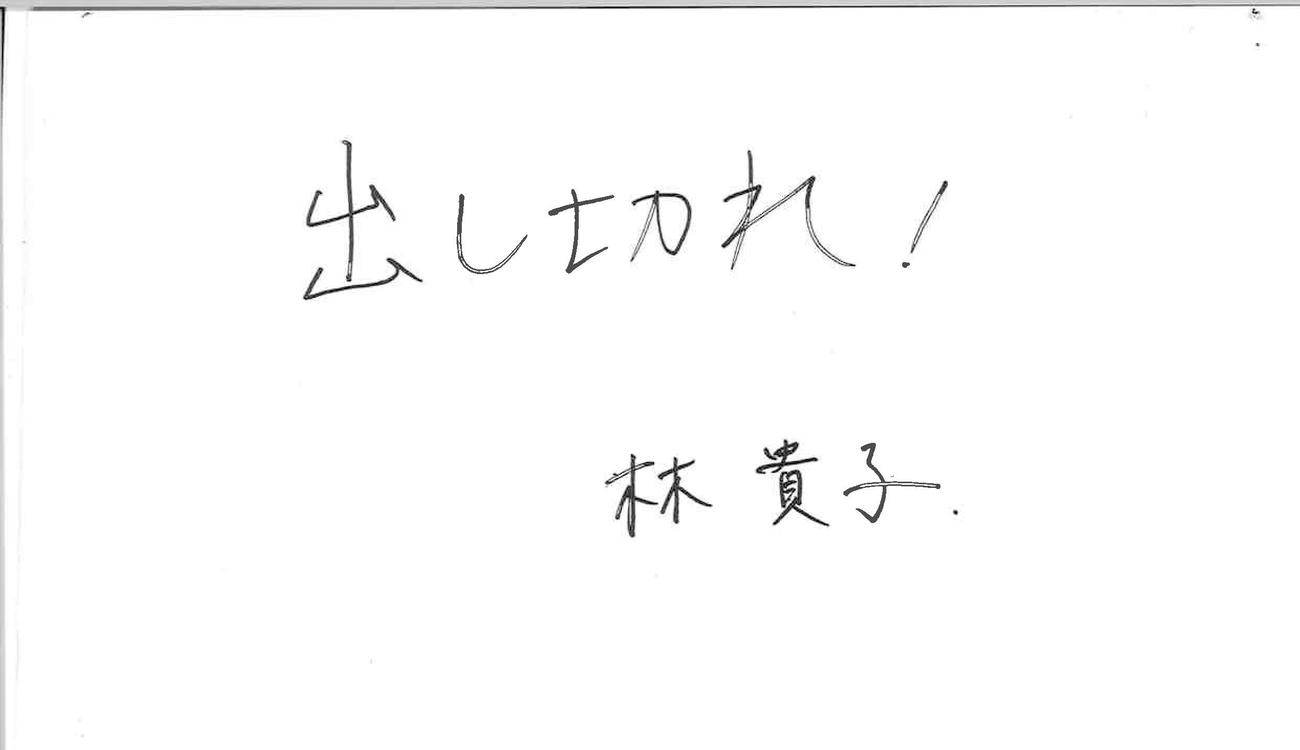 出し切れ!
林 貴子.